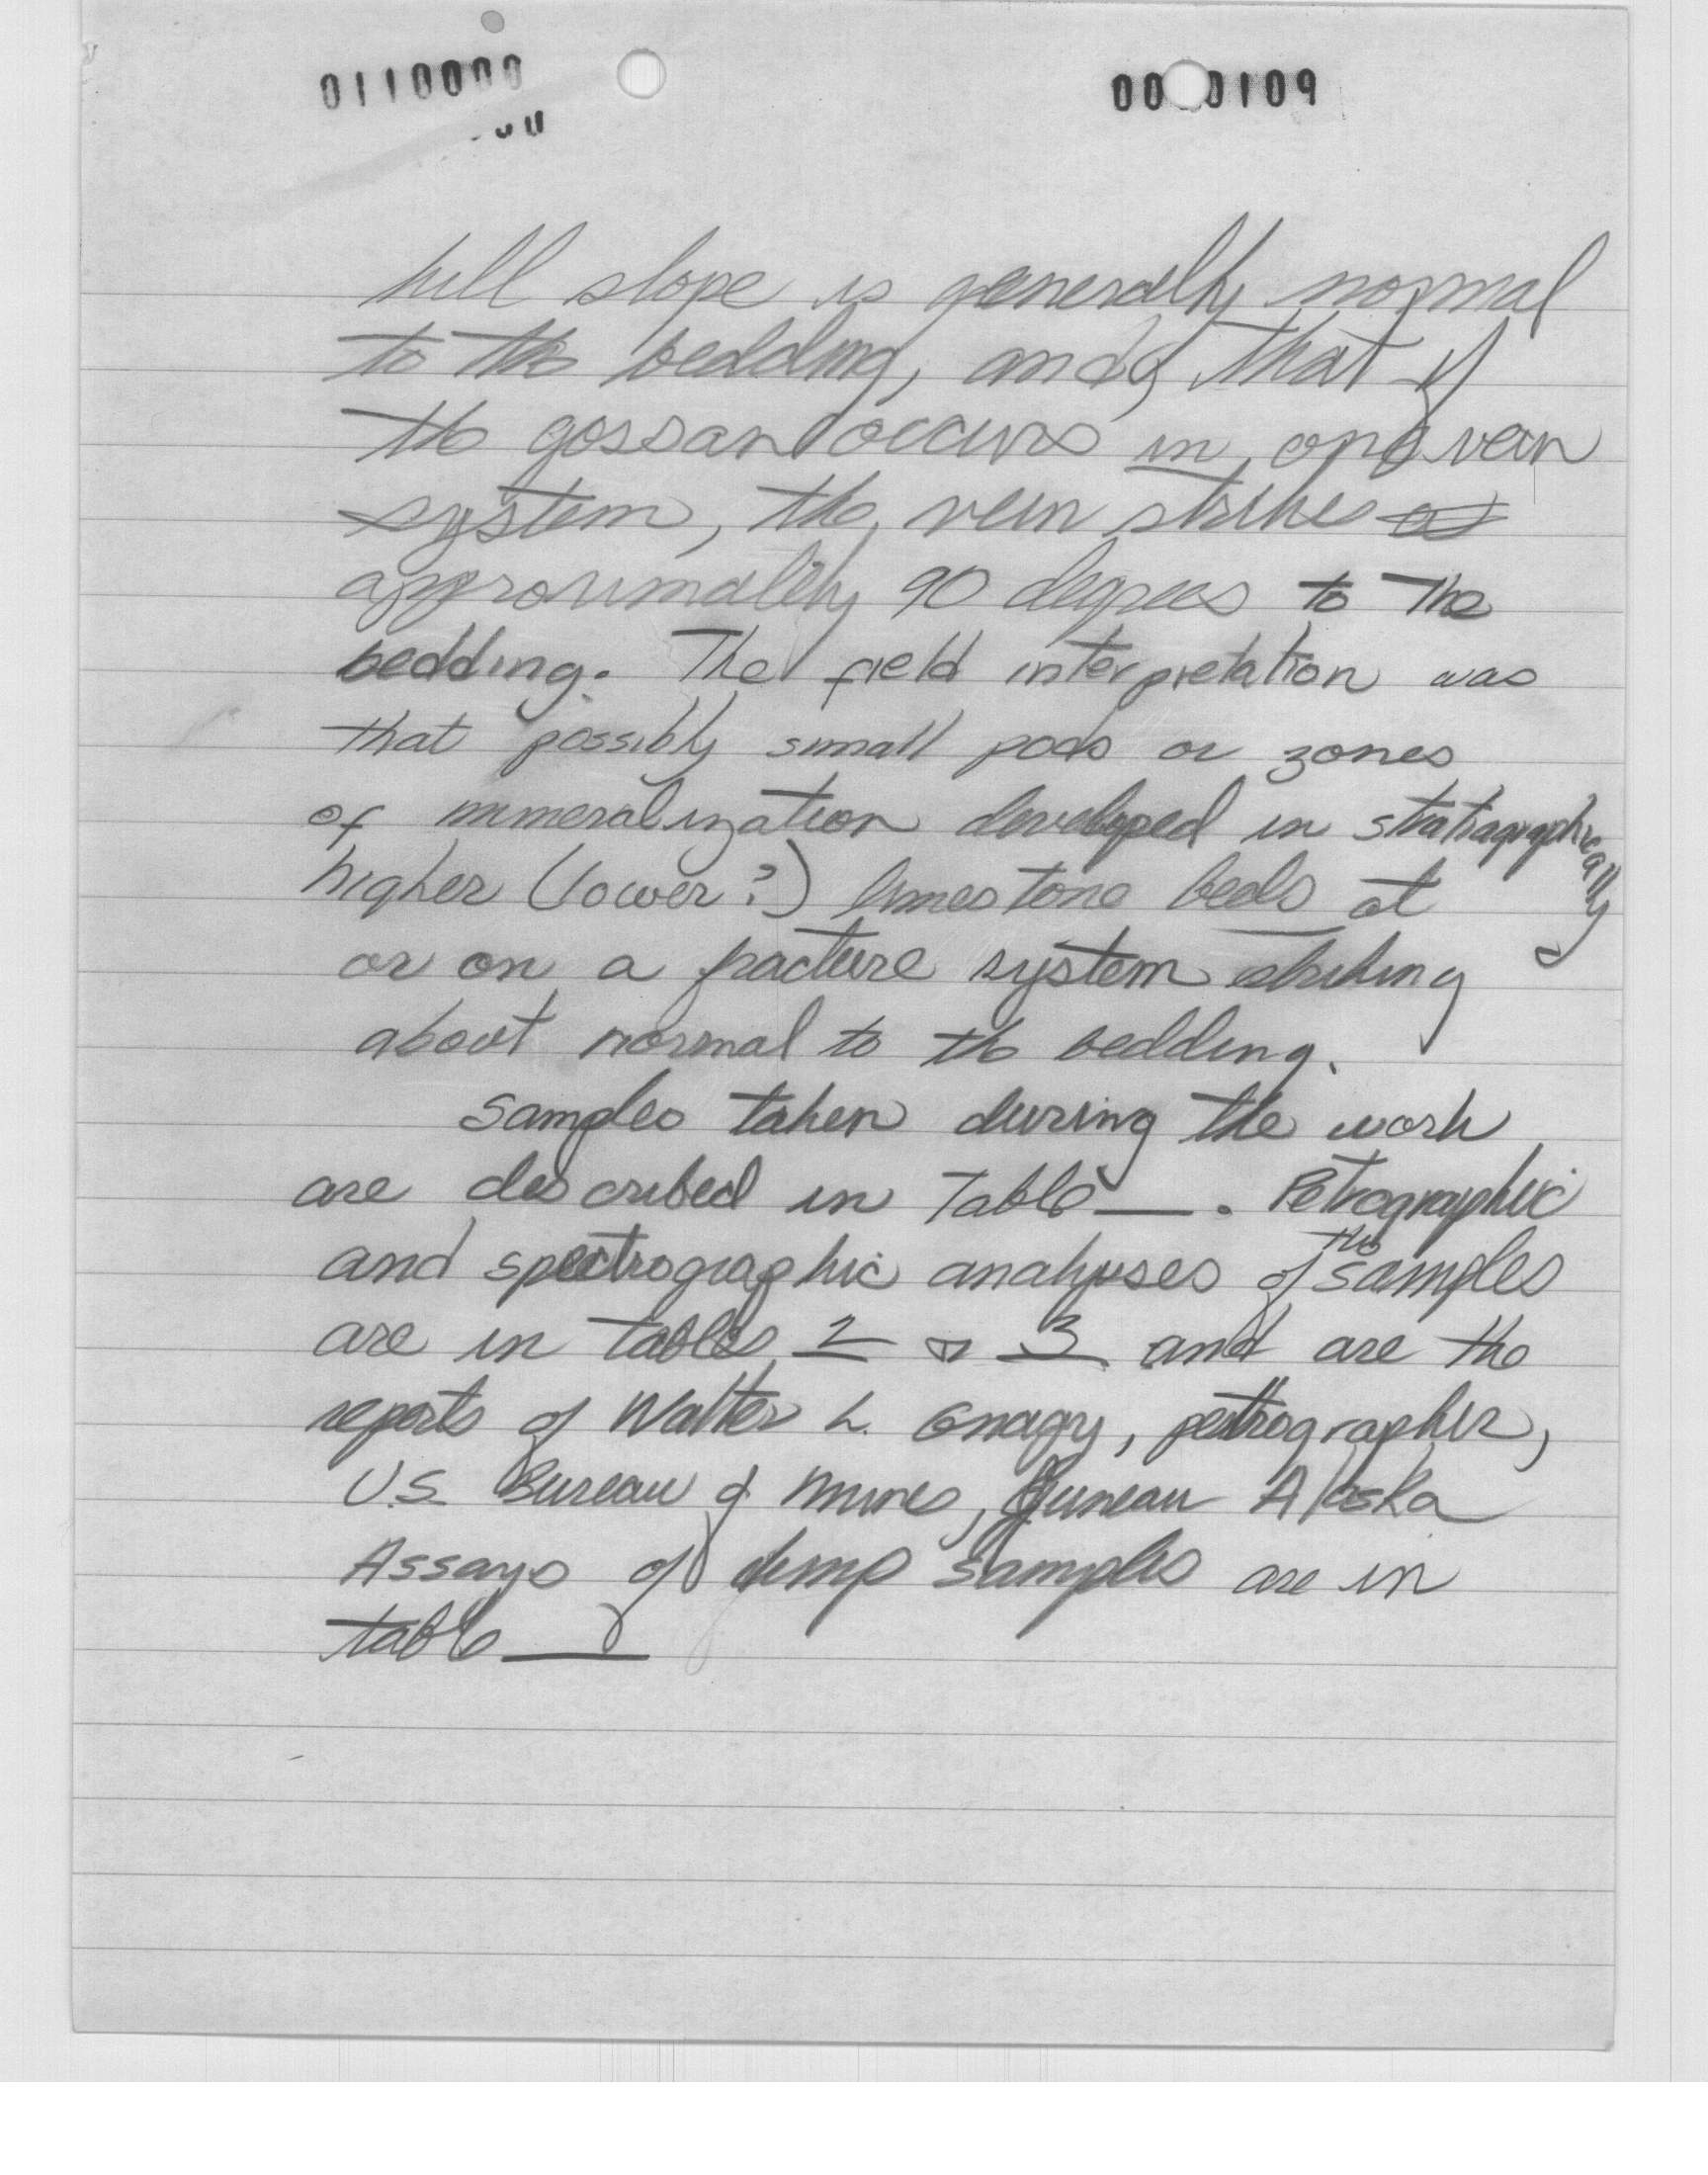 0110000
00 0109
hill slope is generally normal
to the bedding, and, that if
the gossan occurs in one vein
system, the vein strikes
approximately 90 degrees to the
bedding. The field interpretation was
that possibly small pods or zones
of mineralization developed in stratagraphically
higher (lower?) limestone beds at
or on a fracture system striking
about normal to the bedding.
Samples taken during the work
are described in Table __. Petrographic
and spectrographic analyses of the samples
are in tables 2 & 3 and are the
reports of Walter L. Gnagy, petrographer,
U.S. Bureau of Mines, Juneau Alaska
Assays of dump samples are in
table ___